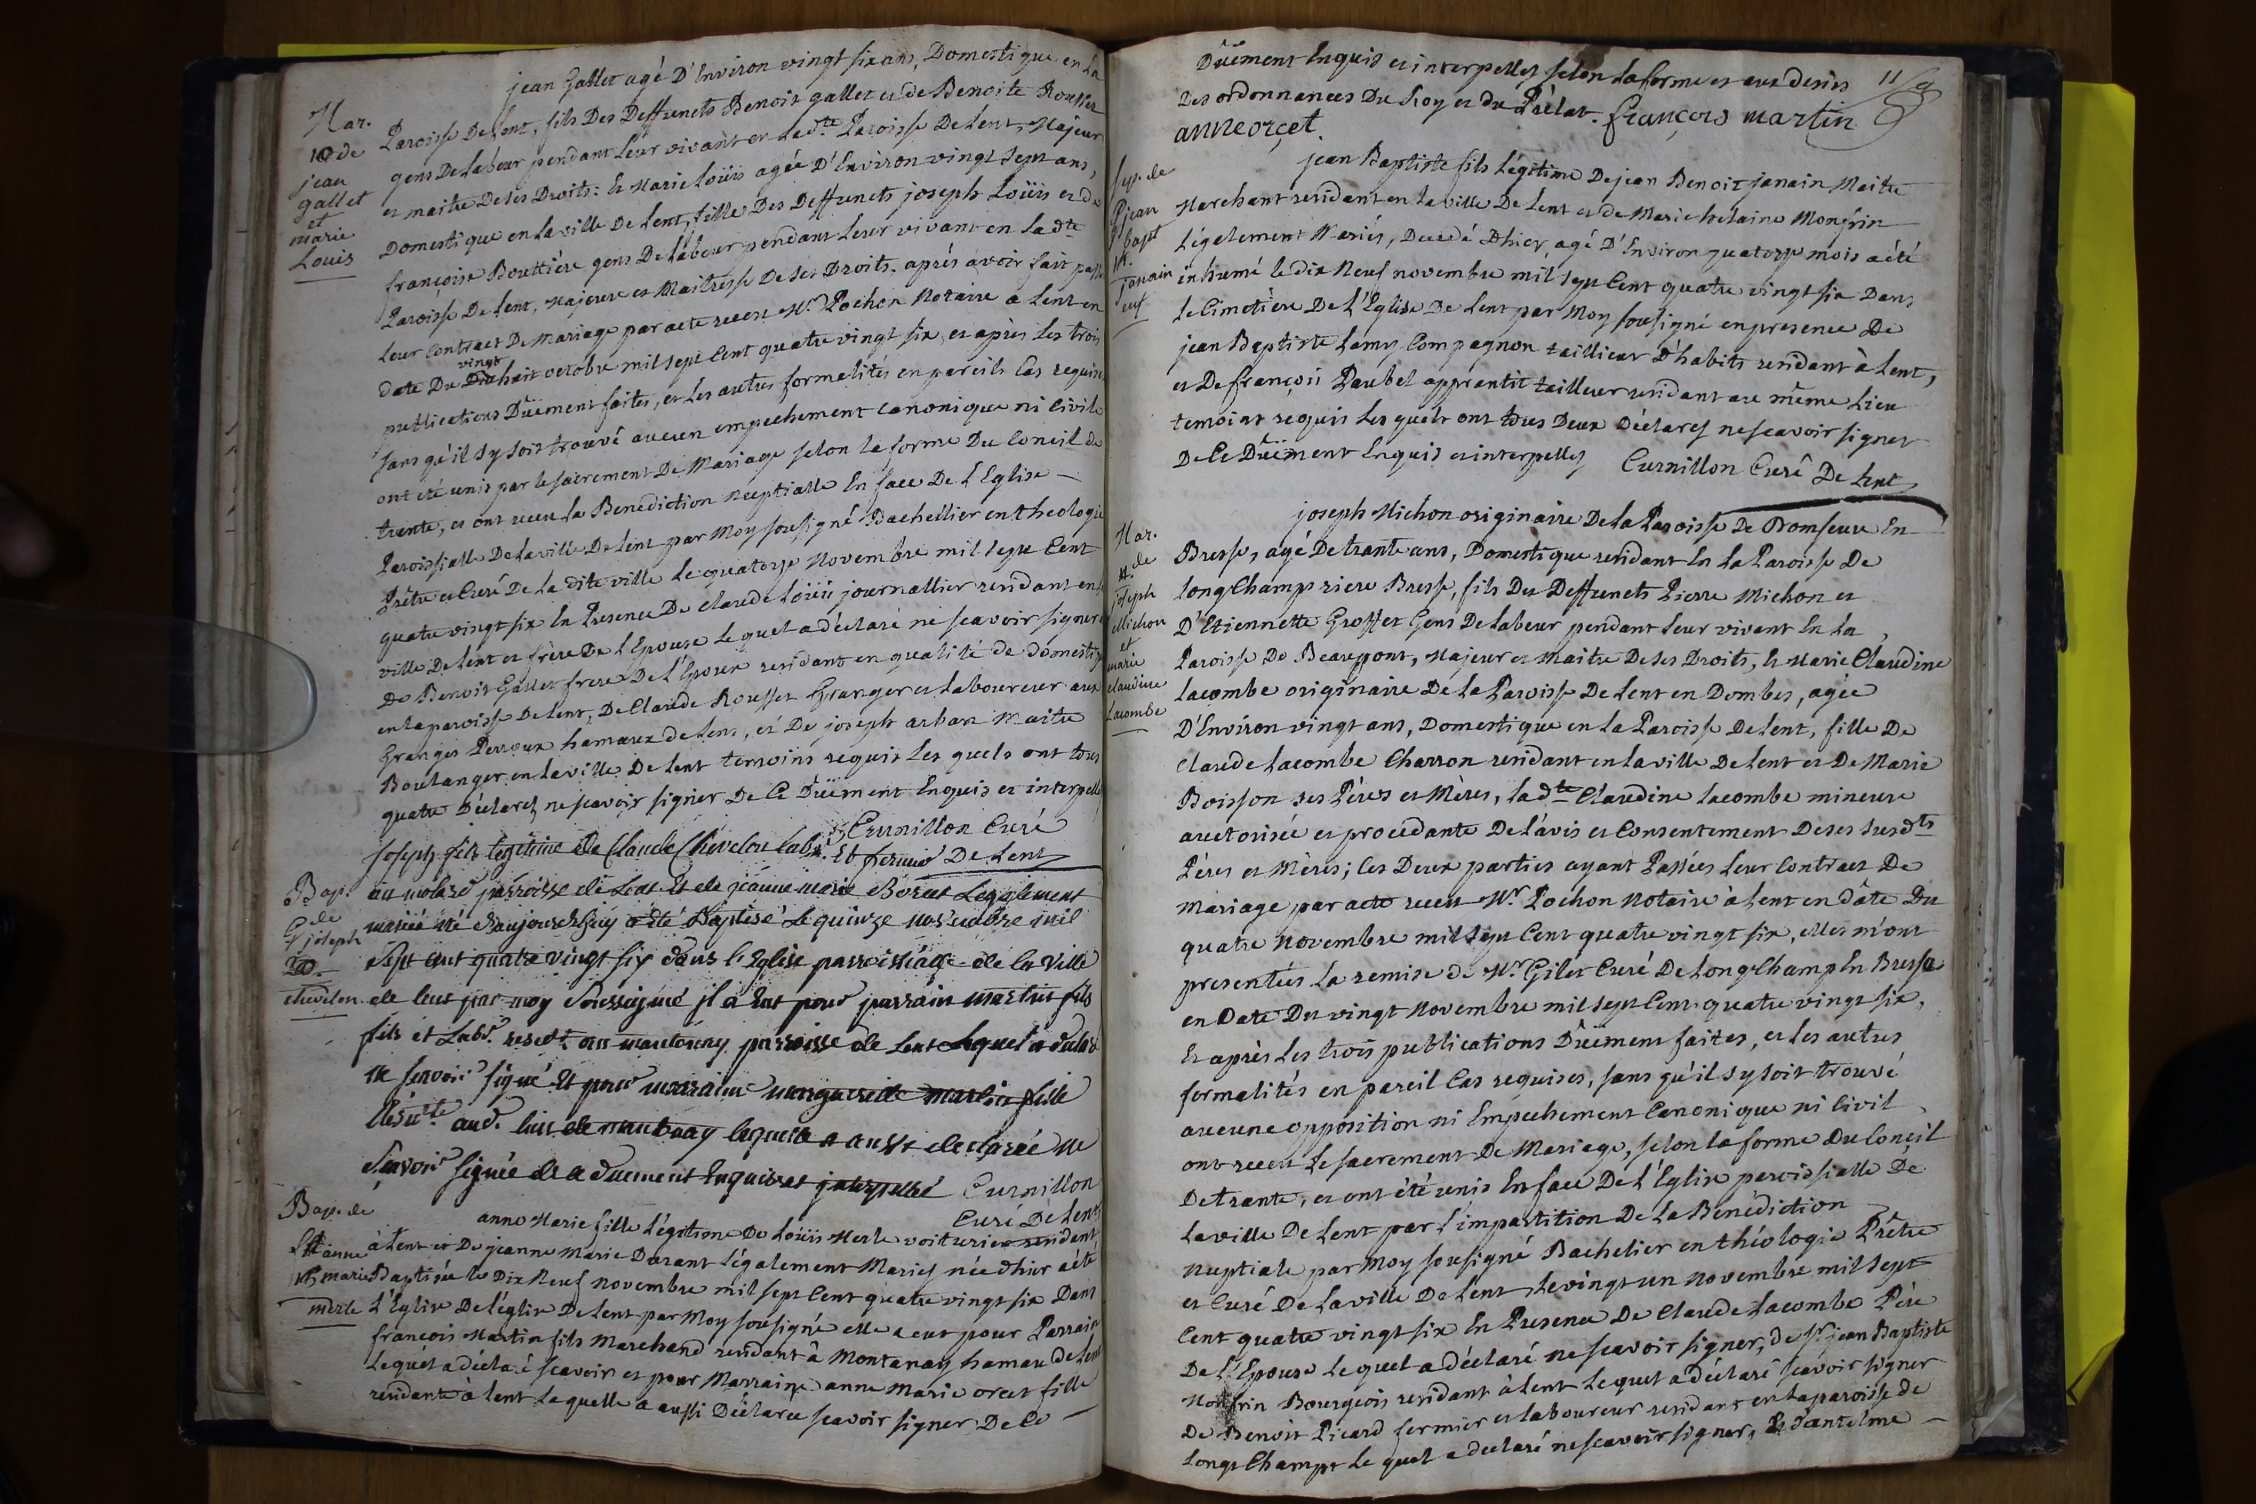 Mar.
10 de
jean
gallet
et
marie
Loüis
jean Gallet agé D'Environ vingt six ans, Domestique en La
Paroisse De Lent, fils Des Deffunets Benoit gallet et de Benoite Rousset
gens De Labeur pendant Leur vivant en Lad.te Paroisse De Lent, Majeur
et maitre De ses Droits: Et Marie Loüis agée D'Environ vingt sept ans,
Domestique en La ville De Lent, fille Des Deffunets joseph Loüis et de
françoise Bouttière gens De Labeur pendant Leur vivant en Lad.te
Paroisse De Lent, Majeure et Maitresse De ses Droits. aprés avoir fait passé
Leur Contract De Mariage par acte receu M.r Pochon Notaire a Lent en
date Du vingt huit octobre mil sept Cent quatre vingt six, et après Les trois
publications Düement faites, et Les autres formalités en pareils Cas requises
sans qu'il s'y soit trouvé aucun empechement canonique ni Civile
ont eté unis par le sacrement De Mariage selon la forme Du Concil de
trente, et ont receu la Benediction nuptialle En face De L'Eglise —
Paroissialle De La ville De Lent par Moy sousigné Bachellier en theologie
Prêtre et Curé De La dite ville Le quatorze Novembre mil sept Cent
quatre vingt six En Presence De Claude Loüis journallier residant en
ville De Lent et frère De L'Epouse Lequel a déclaré ne scavoir signer
De Benoit Gallet frere De L'Epoux residant en qualité de domestique
en la paroisse De Lent, De Claude Rousset Granger et Laboureur aux
Granges Perroux hameaux de Lent, et De joseph arban Maitre
Boulanger en La ville De Lent temoins requis Les quels ont tous
quatre Déclarés ne scavoir signer De Ce Düement Enquis et interpellés
Curnillon Curé
De Lent
Bap.
de
joseph
chevelon
joseph fils legitime de Claude Chevelon Lab.r Et fermier
au molard parroisse de Lent Et de jeanne marie Borat Legalement
mariée né daujourdhuy a eté Baptisé Le quinze novembre mil
Sept cent quatre vingt six dans l'Eglise parroissialle de la Ville
de Lent par moy Soussigné il a Eut pour parrain martin fils
fils et Lab.r resid.t au montenay parroisse de Lent Lequel a déclaré
ne scavoir signé Et pour marraine marguerite martin fille
Résid.te aud. lieu de montenay laquelle a aussi declarée ne
Scavoir Signée de ce duement Enquises interpellé Curnillon
Curé De Lent
Bap. de
anne
marie
merle
anne Marie fille Légitime De Loüis Merle voiturier residant
à Lent et De jeanne Marie Durant Légalement Mariés née d'hier a été
Baptisée Le Dix Neuf Novembre mil sept Cent quatre vingt six Dans
L'Eglise De L'église De Lent par Moy sousigné elle a eut pour Parrain
françois Martin fils Marchand residant à Montenay hameau de Lent
Lequel a déclaré scavoir et pour Marraine anne Marie orcet fille
residante à Lent Laquelle a aussi Déclarée scavoir signer De Ce —
11
Düement Enquis et interpellés selon La forme et aux desirs
Des ordonnances Du Roy et du Prélat. François martin
anne orcet.
Sep. de
jean
bapt
janain
jean Baptiste fils Légitime De jean Benoit janain Maitre
Marchant residant en La ville De Lent et de Marie helaine Monfrin
Légalement Mariés, Decedé D'hier agé D'Environ quatorze mois a été
inhumé le dix Neuf novembre mil sept Cent quatre vingt six Dans
Le Cimetière De L'Eglise De Lent par Moy sousigné en presence De
jean Baptiste Lamy Compagnon taillieur D'habits residant à Lent,
et De françois Paubel apprentit tailleur residant au même Lieu
temoins requis Lesquels ont tous Deux Déclarés ne scavoir signer
De Ce Düement Enquis et interpellés Curnillon Curé De Lent
Mar.
de
joseph
Michon
et
marie
claudine
Lacombe
joseph Michon originaire De La Paroisse De Domsure En
Bresse, agé De trante ans, Domestique residant En La Paroisse De
Long Champ riere Bresse, fils Des Deffunets Pierre Michon et
D'Etiennette Grosset Gens De Labeur pendant Leur vivant En La
Paroisse De Beaupont, Majeur et Maitre De ses Droits, Et Marie Claudine
Lacombe originaire De La Paroisse De Lent en Dombes, agée
D'Environ vingt ans, Domestique en La Paroisse De Lent, fille De
Claude Lacombe Charron residant en La ville De Lent et De Marie
Boisson ses Pères et Mères, Lad.te Claudine Lacombe mineure
auctorisée et procedante De L'avis et Consentement De ses Susd.ts
Pères et Mères; Les Deux parties ayant Passées Leur Contract De
Mariage par acte receu M.r Pochon Notaire à Lent en Date Du
quatre Novembre mil sept Cent quatre vingt six, elles m'ont
presentées La remise de M.r Gilet Curé De Long Champ En Bresse
en Date Du vingt Novembre mil sept Cent quatre vingt six,
Et après Les trois publications Düement faites, et Les autres
formalités en pareil Cas requises, sans qu'il s'y soit trouvé
aucune opposition ni Empechement Canonique ni Civil
ont receu Le sacrement De Mariage, selon la forme Du Concil
De trante, et ont été unis En face De L'Eglise paroissialle De
La ville De Lent par L'impartition De La Bénédiction
Nuptiale par Moy sousigné Bachelier en théologie Prêtre
et Curé De La ville De Lent, Le vingt un Novembre mil sept
Cent quatre vingt six En Presence De Claude Lacombe Père
De L'Epouse Lequel a déclaré ne scavoir signer, de S.r jean Baptiste
Monfrin Bourgeois residant à Lent Lequel a déclaré scavoir signer
De Benoit Picard fermier et laboureur residant en La paroisse de
Longs Champs Le quel a declaré ne scavoir signer, Et d'antelme —